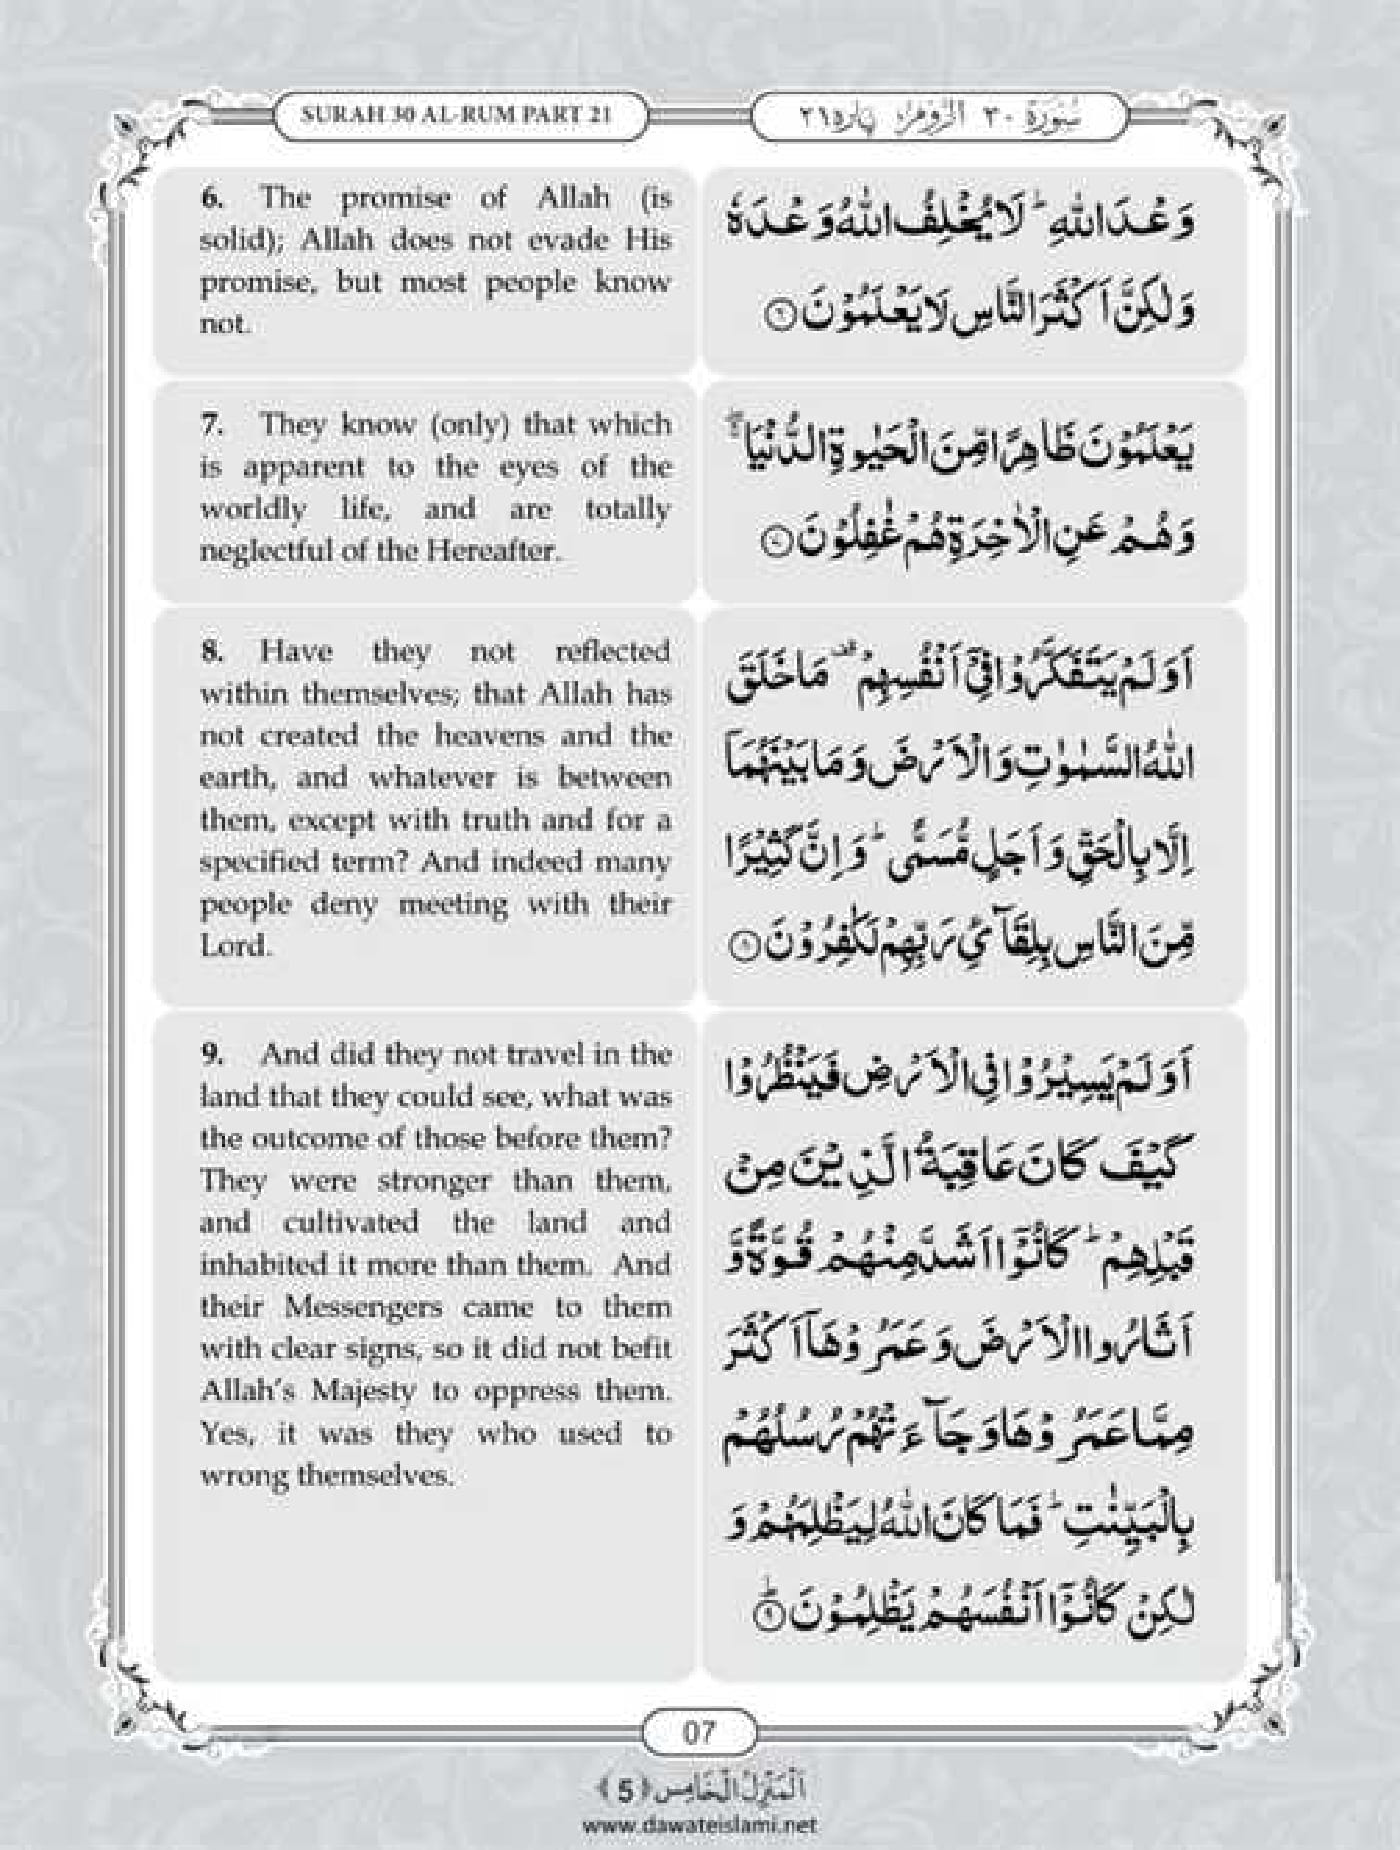 SURAH 30 AL-RUM PART 21
سُوْرَة ٣٠ اَلرُّوْم پاره ٢١
6. The promise of Allah (is
solid); Allah does not evade His
promise, but most people know
not.
وَعْدَ اللّٰهِ ؕ لَا یُخْلِفُ اللّٰهُ وَعْدَهٗ
وَلٰكِنَّ اَكْثَرَ النَّاسِ لَا یَعْلَمُوْنَ ۝۶
7. They know (only) that which
is apparent to the eyes of the
worldly life, and are totally
neglectful of the Hereafter.
یَعْلَمُوْنَ ظَاهِرًا مِّنَ الْحَیٰوةِ الدُّنْیَا ۖۚ
وَهُمْ عَنِ الْاٰخِرَةِ هُمْ غٰفِلُوْنَ ۝۷
8. Have they not reflected
within themselves; that Allah has
not created the heavens and the
earth, and whatever is between
them, except with truth and for a
specified term? And indeed many
people deny meeting with their
Lord.
اَوَلَمْ یَتَفَكَّرُوْا فِیْۤ اَنْفُسِهِمْ ۫ مَا خَلَقَ
اللّٰهُ السَّمٰوٰتِ وَالْاَرْضَ وَمَا بَیْنَهُمَاۤ
اِلَّا بِالْحَقِّ وَاَجَلٍ مُّسَمًّی ؕ وَاِنَّ كَثِیْرًا
مِّنَ النَّاسِ بِلِقَآئِ رَبِّهِمْ لَكٰفِرُوْنَ ۝۸
9. And did they not travel in the
land that they could see, what was
the outcome of those before them?
They were stronger than them,
and cultivated the land and
inhabited it more than them. And
their Messengers came to them
with clear signs, so it did not befit
Allah's Majesty to oppress them.
Yes, it was they who used to
wrong themselves.
اَوَلَمْ یَسِیْرُوْا فِی الْاَرْضِ فَیَنْظُرُوْا
كَیْفَ كَانَ عَاقِبَةُ الَّذِیْنَ مِنْ
قَبْلِهِمْ ؕ كَانُوْۤا اَشَدَّ مِنْهُمْ قُوَّةً وَّ
اَثَارُوا الْاَرْضَ وَعَمَرُوْهَاۤ اَكْثَرَ
مِمَّا عَمَرُوْهَا وَجَآءَتْهُمْ رُسُلُهُمْ
بِالْبَیِّنٰتِ ؕ فَمَا كَانَ اللّٰهُ لِیَظْلِمَهُمْ وَ
لٰكِنْ كَانُوْۤا اَنْفُسَهُمْ یَظْلِمُوْنَ ؕ۝۹
07
اَلْمَنْزِلُ الْخَامِس (5)
www.dawateislami.net